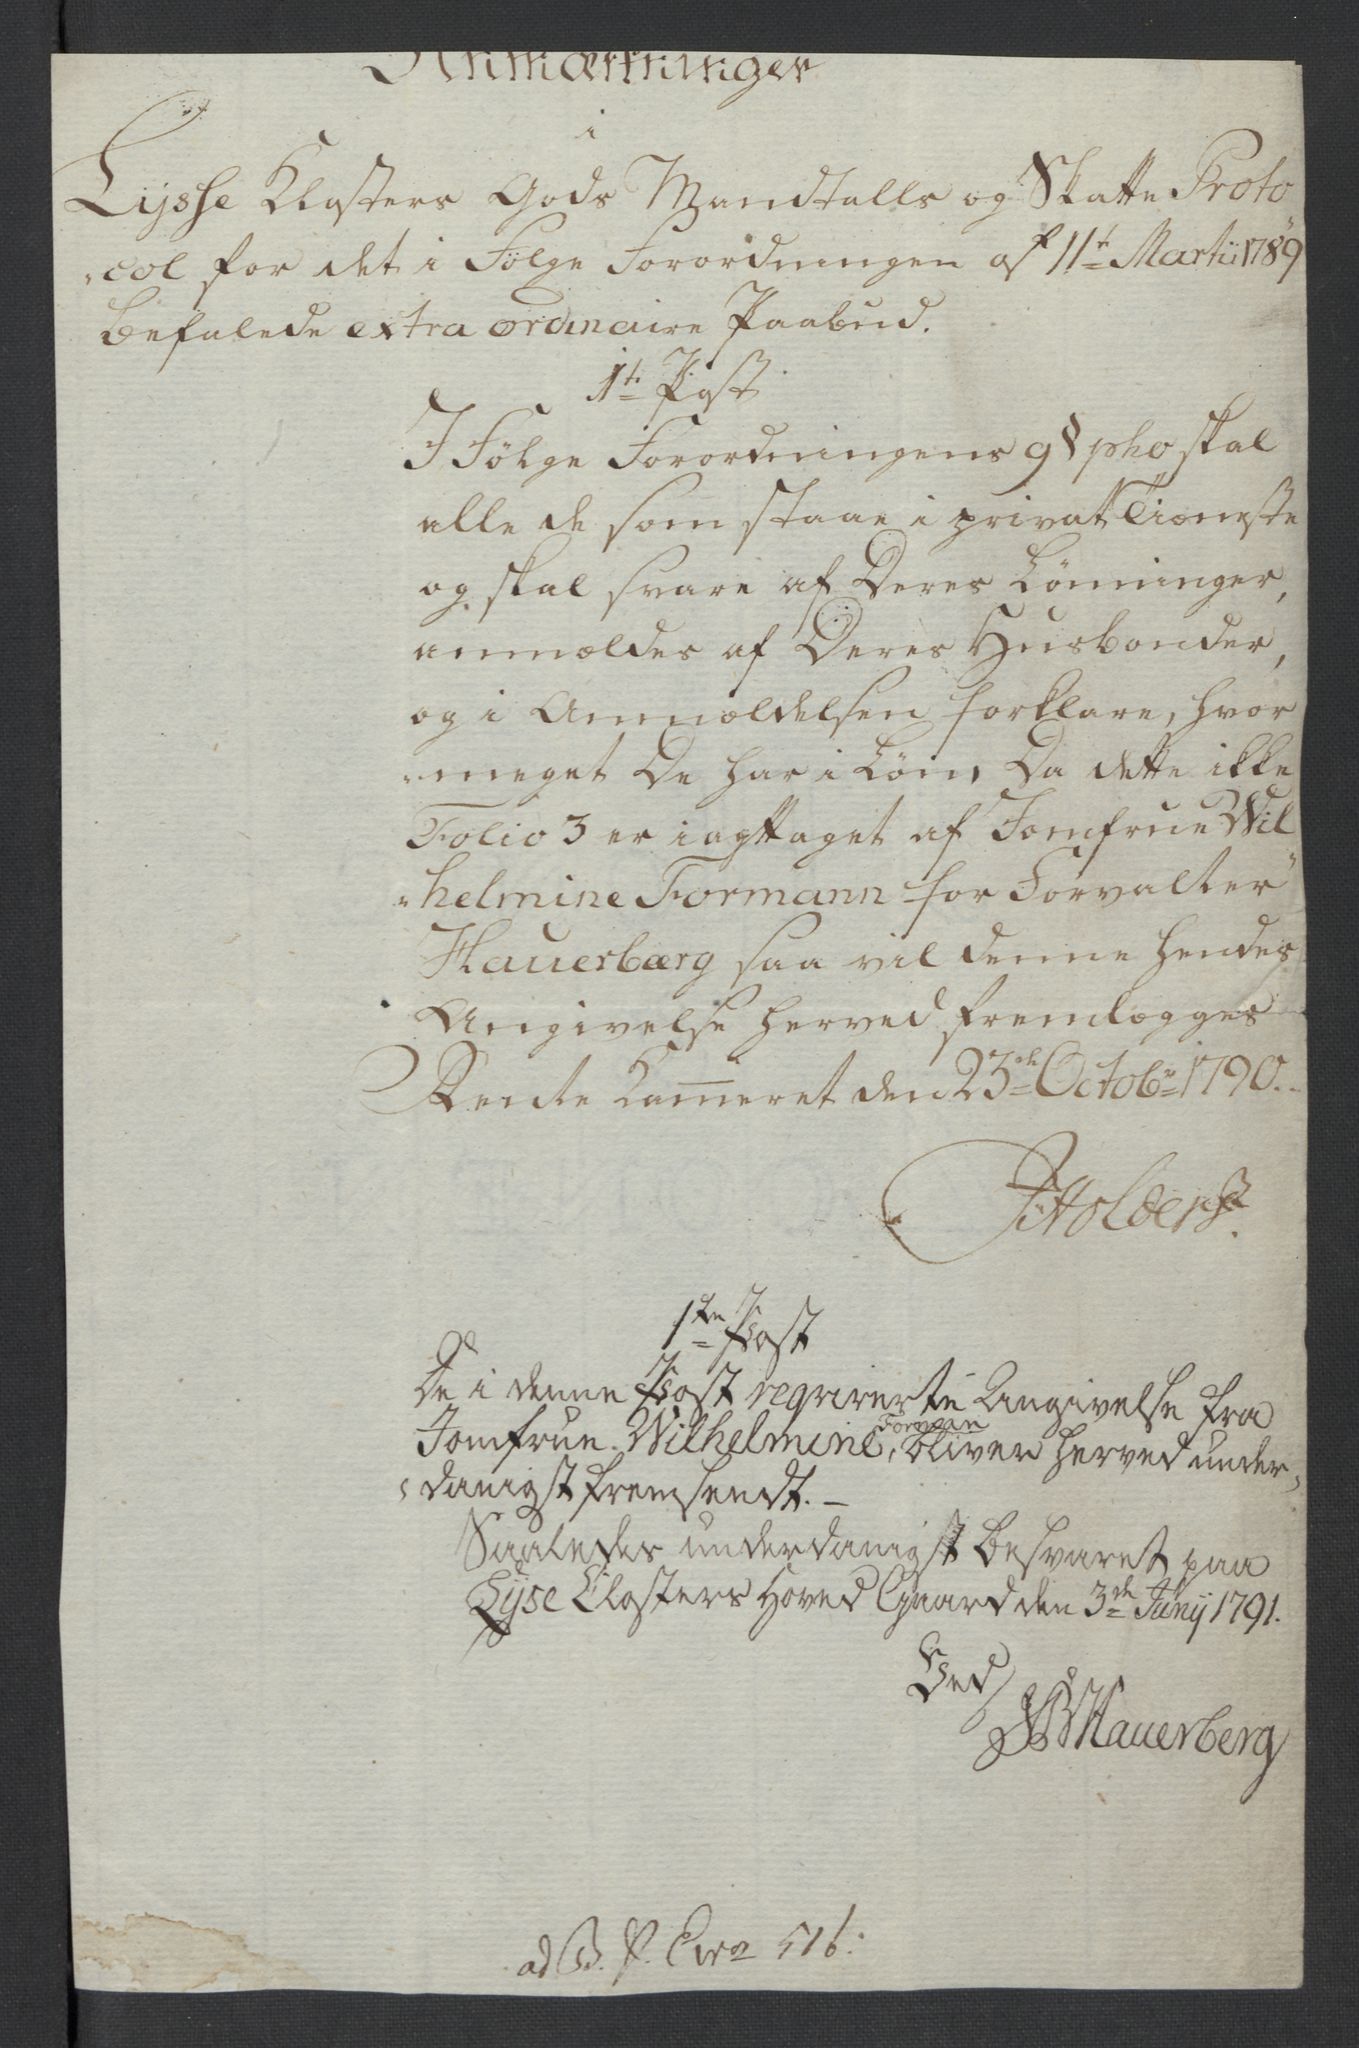 Anmærkninger
i
Lysse Klosters Gods Mandtalls og Skatte Proto
"col for det i Følge Forordningen af 11te Martii 1789
befalede extra ordinaire Paabud.
1te Post
I Følge Forordningens 9 § pho skal
alle de som staae i privat Tieneste
og skal svare af Deres Lønninger,
anmeldes af Deres Husbonder,
og i Anmeldelsen forklare, hvor
"meget De har i Løn, Da dette ikke
Folio 3 er iagttaget af Jomfrue Wil
"helmine Formann for Forvalter
Hauerbærg saa vil denne hendes
Angivelse herved fremlægges
Rente Kam̅eret den 23de Octobr 1790.
Holbers
1ste Post
De i denne Post reqvirerte Angivelse fra
Jomfrue Wilhelmine Forman, bliver herved under-
danigst fremsendt. –
Saaledes underdanigst besvaret paa
Lyse Closters Hoved Gaard den 3de Junij 1791.
Ved
Hauerberg
ad B. P. 516.